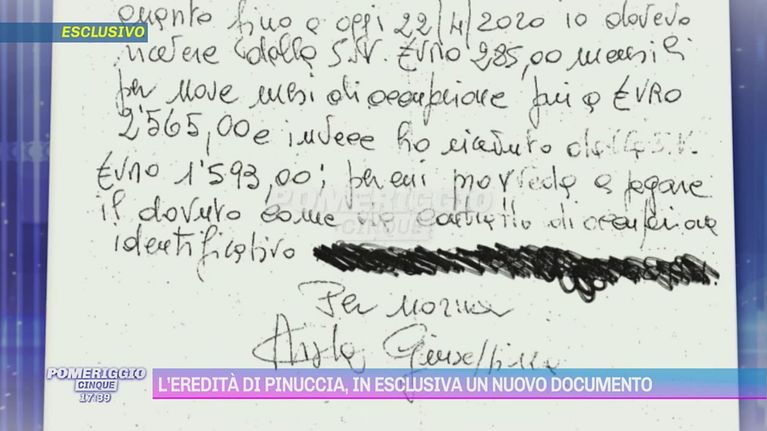 ESCLUSIVO
quanto fino a oggi 22/4/2020 io dovevo
ricevere dalla S.V. EURO 285,00 mensili
per nove mesi di occupazione fino a EURO
2'565,00 e invece ho ricevuto dalla S.V.
EURO 1'593,00; per cui provveda a pagare
il dovuto come da contratto di occupazione
identificativo
POMERIGGIO
CINQUE
Per
Giuseppina
POMERIGGIO
CINQUE
17:39
L'EREDITÀ DI PINUCCIA, IN ESCLUSIVA UN NUOVO DOCUMENTO